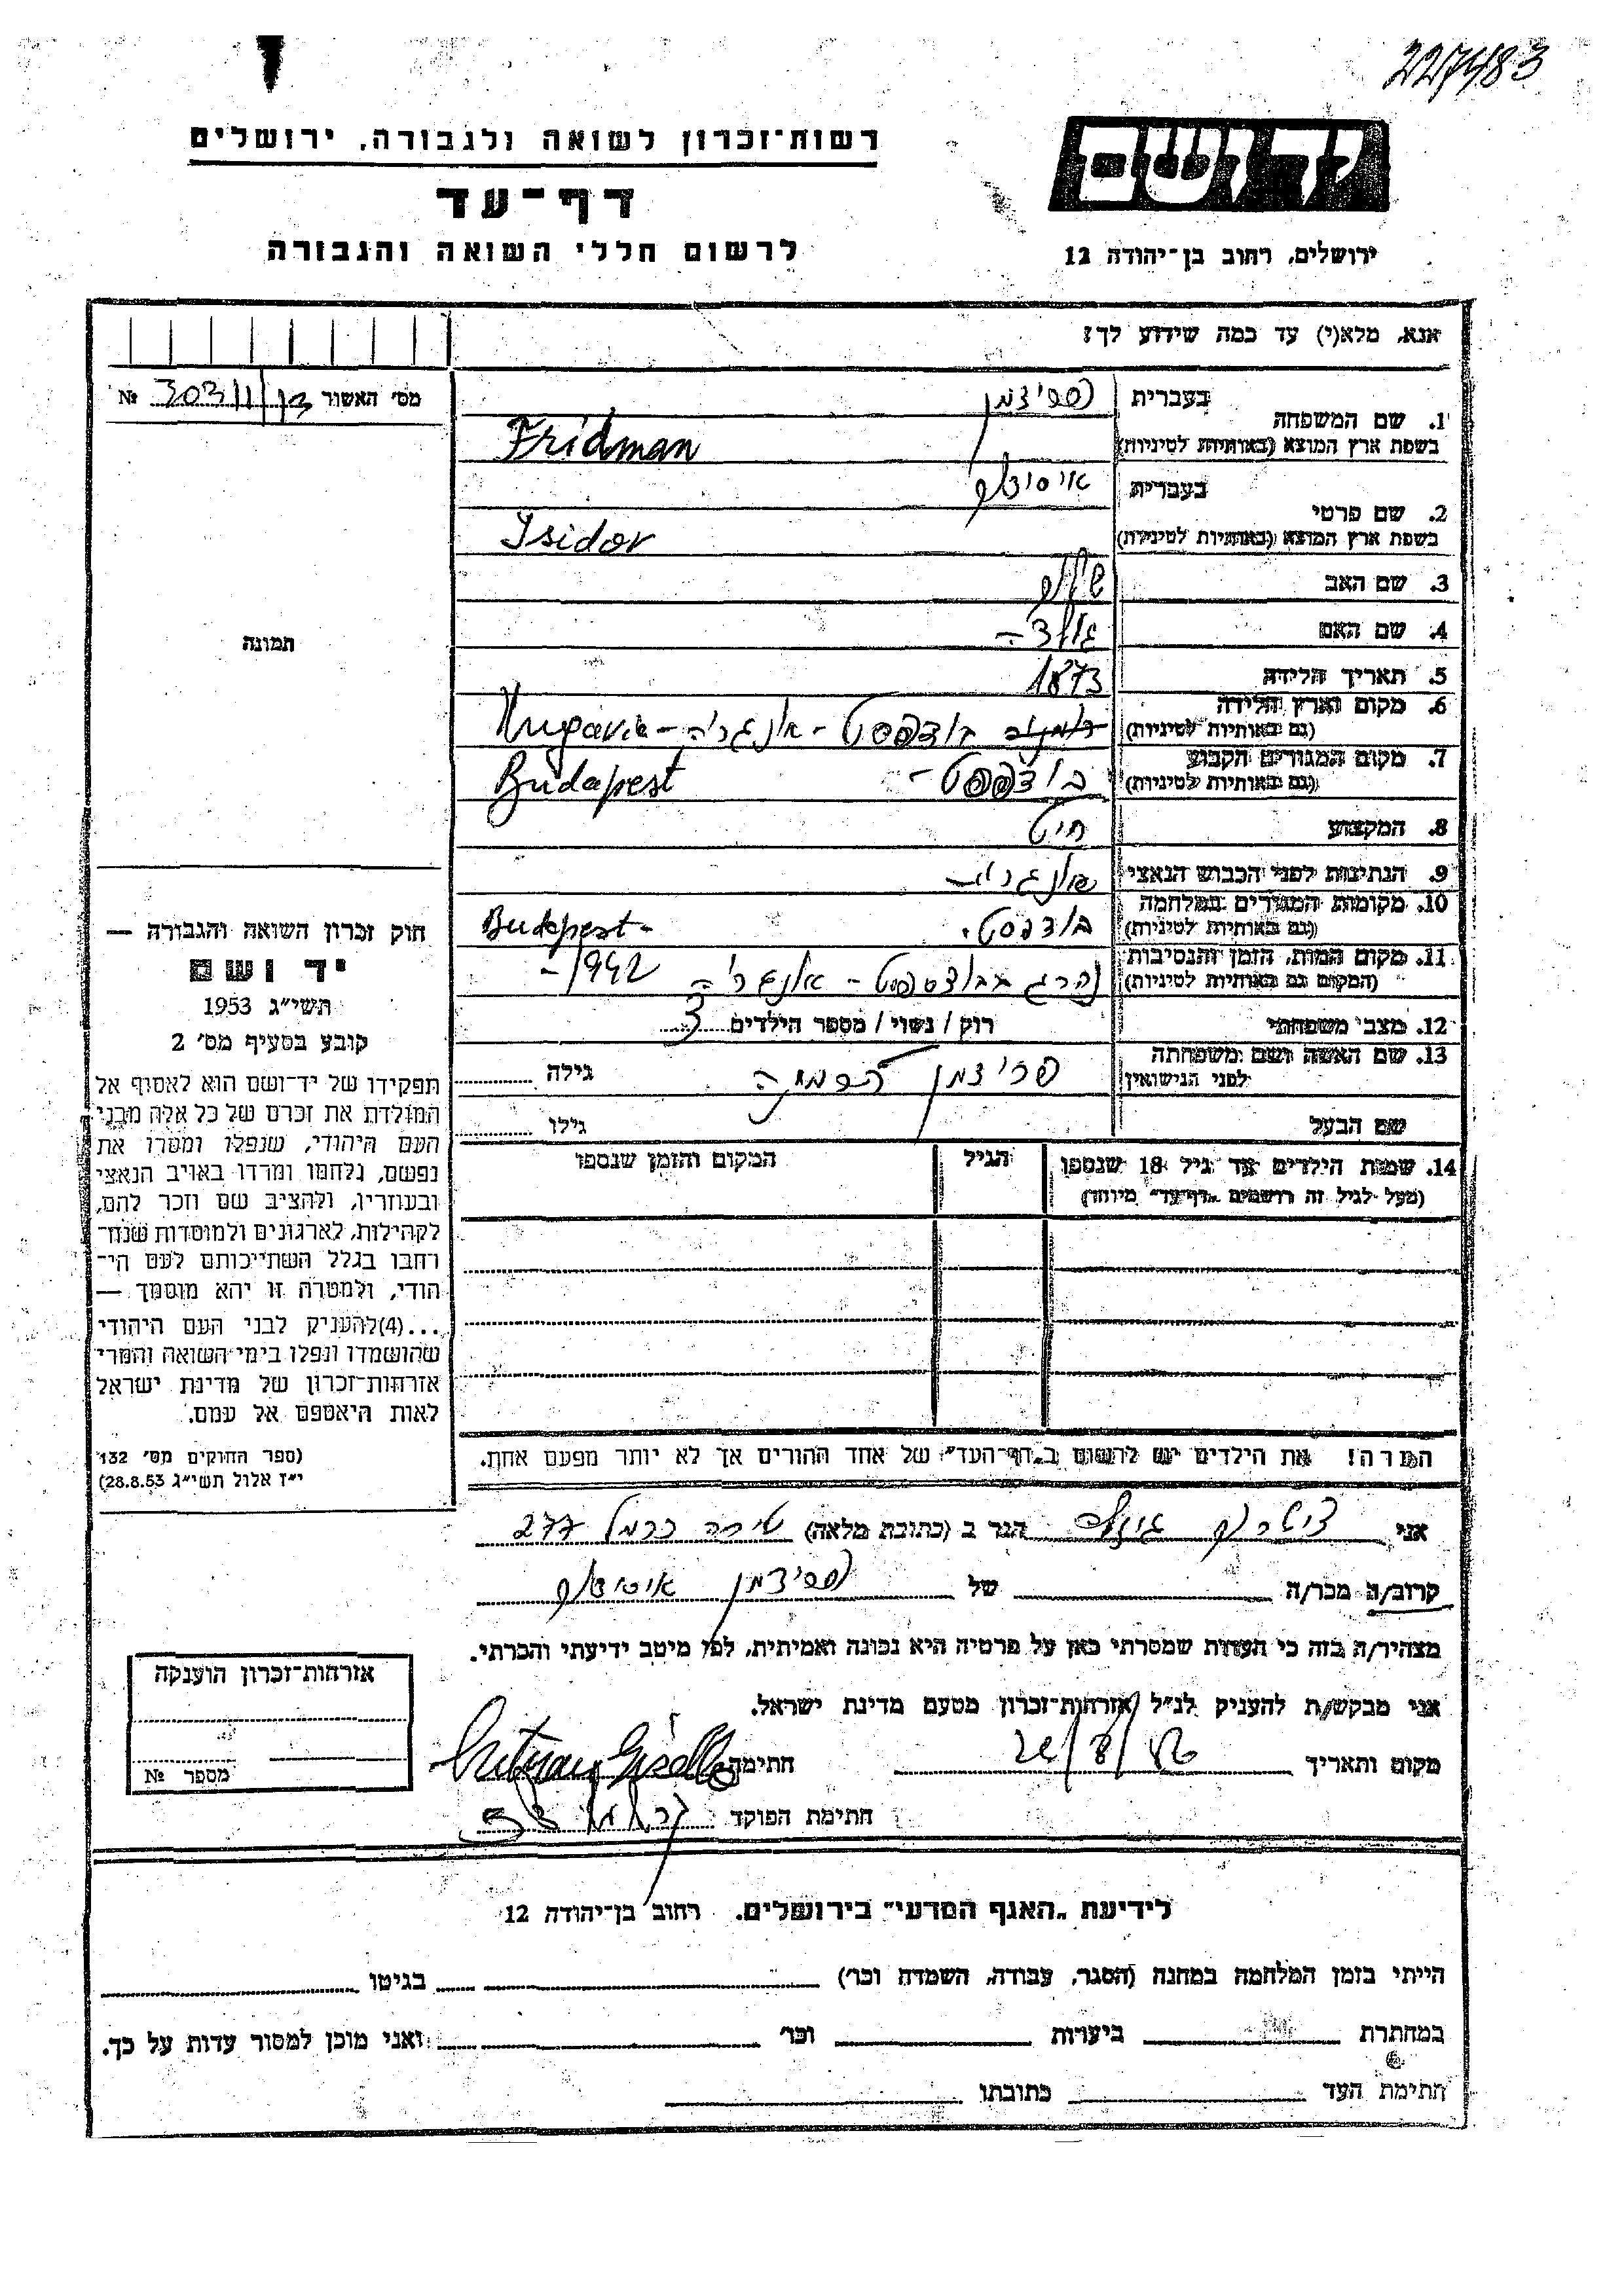 227483
רשות־זכרון לשואה ולגבורה, ירושלים
יד ושם
דף־עד
לרשום חללי השואה והגבורה
ירושלים, רחוב בן־יהודה 12
אנא, מלא(י) עד כמה שידוע לך:
מס׳ האשור № 303/11
1. שם המשפחה בעברית פרידמן
בשפת ארץ המוצא (באותיות לטיניות) Fridman
2. שם פרטי בעברית איסידור
בשפת ארץ המוצא (באותיות לטיניות) Isidor
3. שם האב
4. שם האם
5. תאריך הלידה 1873
6. מקום וארץ הלידה בודפסט - אונגריה -
(גם באותיות לטיניות)
7. מקום המגורים הקבוע בודפסט - Budapest
(גם באותיות לטיניות)
8. המקצוע חיט
9. הנתינות לפני הכבוש הנאצי אונגרית
10. מקומות המגורים במלחמה בודפסט. Budapest-
(גם באותיות לטיניות)
11. מקום המות, הזמן והנסיבות נהרג בבודפסט - אונגריה 1942-
(המקום גם באותיות לטיניות)
12. מצב משפחתי רוק / נשוי / מספר הילדים 3
13. שם האשה ושם משפחתה פרידמן גילה
לפני הנישואין
שם הבעל גילו
14. שמות הילדים עד גיל 18 שנספו הגיל המקום והזמן שנספו
(מעל לגיל זה רושמים „דף־עד״ מיוחד)
תמונה
חוק זכרון השואה והגבורה —
יד ושם
תשי״ג 1953
קובע בסעיף מס׳ 2
תפקידו של יד־ושם הוא לאסוף אל
המולדת את זכרם של כל אלה מבני
העם היהודי, שנפלו ומסרו את
נפשם, נלחמו ומרדו באויב הנאצי
ובעוזריו, ולהציב שם וזכר להם,
לקהילות, לארגונים ולמוסדות שנח־
רבו בגלל השתייכותם לעם הי־
הודי, ולמטרה זו יהא מוסמך —
...(4)להעניק לבני העם היהודי
שהושמדו ונפלו בימי השואה והמרי
אזרחות־זכרון של מדינת ישראל
לאות היאספם אל עמם.
(ספר החוקים מס׳ 132
י״ז אלול תשי״ג 28.8.53)
הערה! את הילדים יש לרשום ב„דף־העד״ של אחד ההורים אך לא יותר מפעם אחת.
אני הגר ב (כתובת מלאה) טירה כרמל 277
קרוב/ה מכר/ה של פרידמן איסידור
מצהיר/ה בזה כי העדות שמסרתי כאן על פרטיה היא נכונה ואמיתית, לפי מיטב ידיעתי והכרתי.
אני מבקש/ת להעניק לנ״ל אזרחות־זכרון מטעם מדינת ישראל.
מקום ותאריך חתימה
חתימת הפוקד
אזרחות־זכרון הוענקה
מספר №
לידיעת „האגף המדעי״ בירושלים, רחוב בן־יהודה 12
הייתי בזמן המלחמה במחנה (הסגר, עבודה, השמדה וכר׳) בגיטו
במחתרת ביערות וכר׳ ואני מוכן למסור עדות על כך.
חתימת העד כתובתו